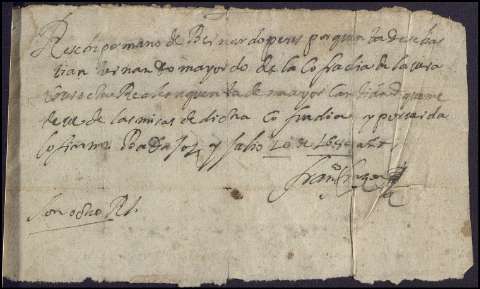 Resevi por mano de Bernardo peres por quenta de sebas
tian hernando mayordo de la Cofradia de la vera
ocho Reales quenta de mayor Cantidad que me
deve de las misas de dicha Cofradia y por verda
lo firme Badajoz y Julio 20 de años
Franco
Son ocho Rs.